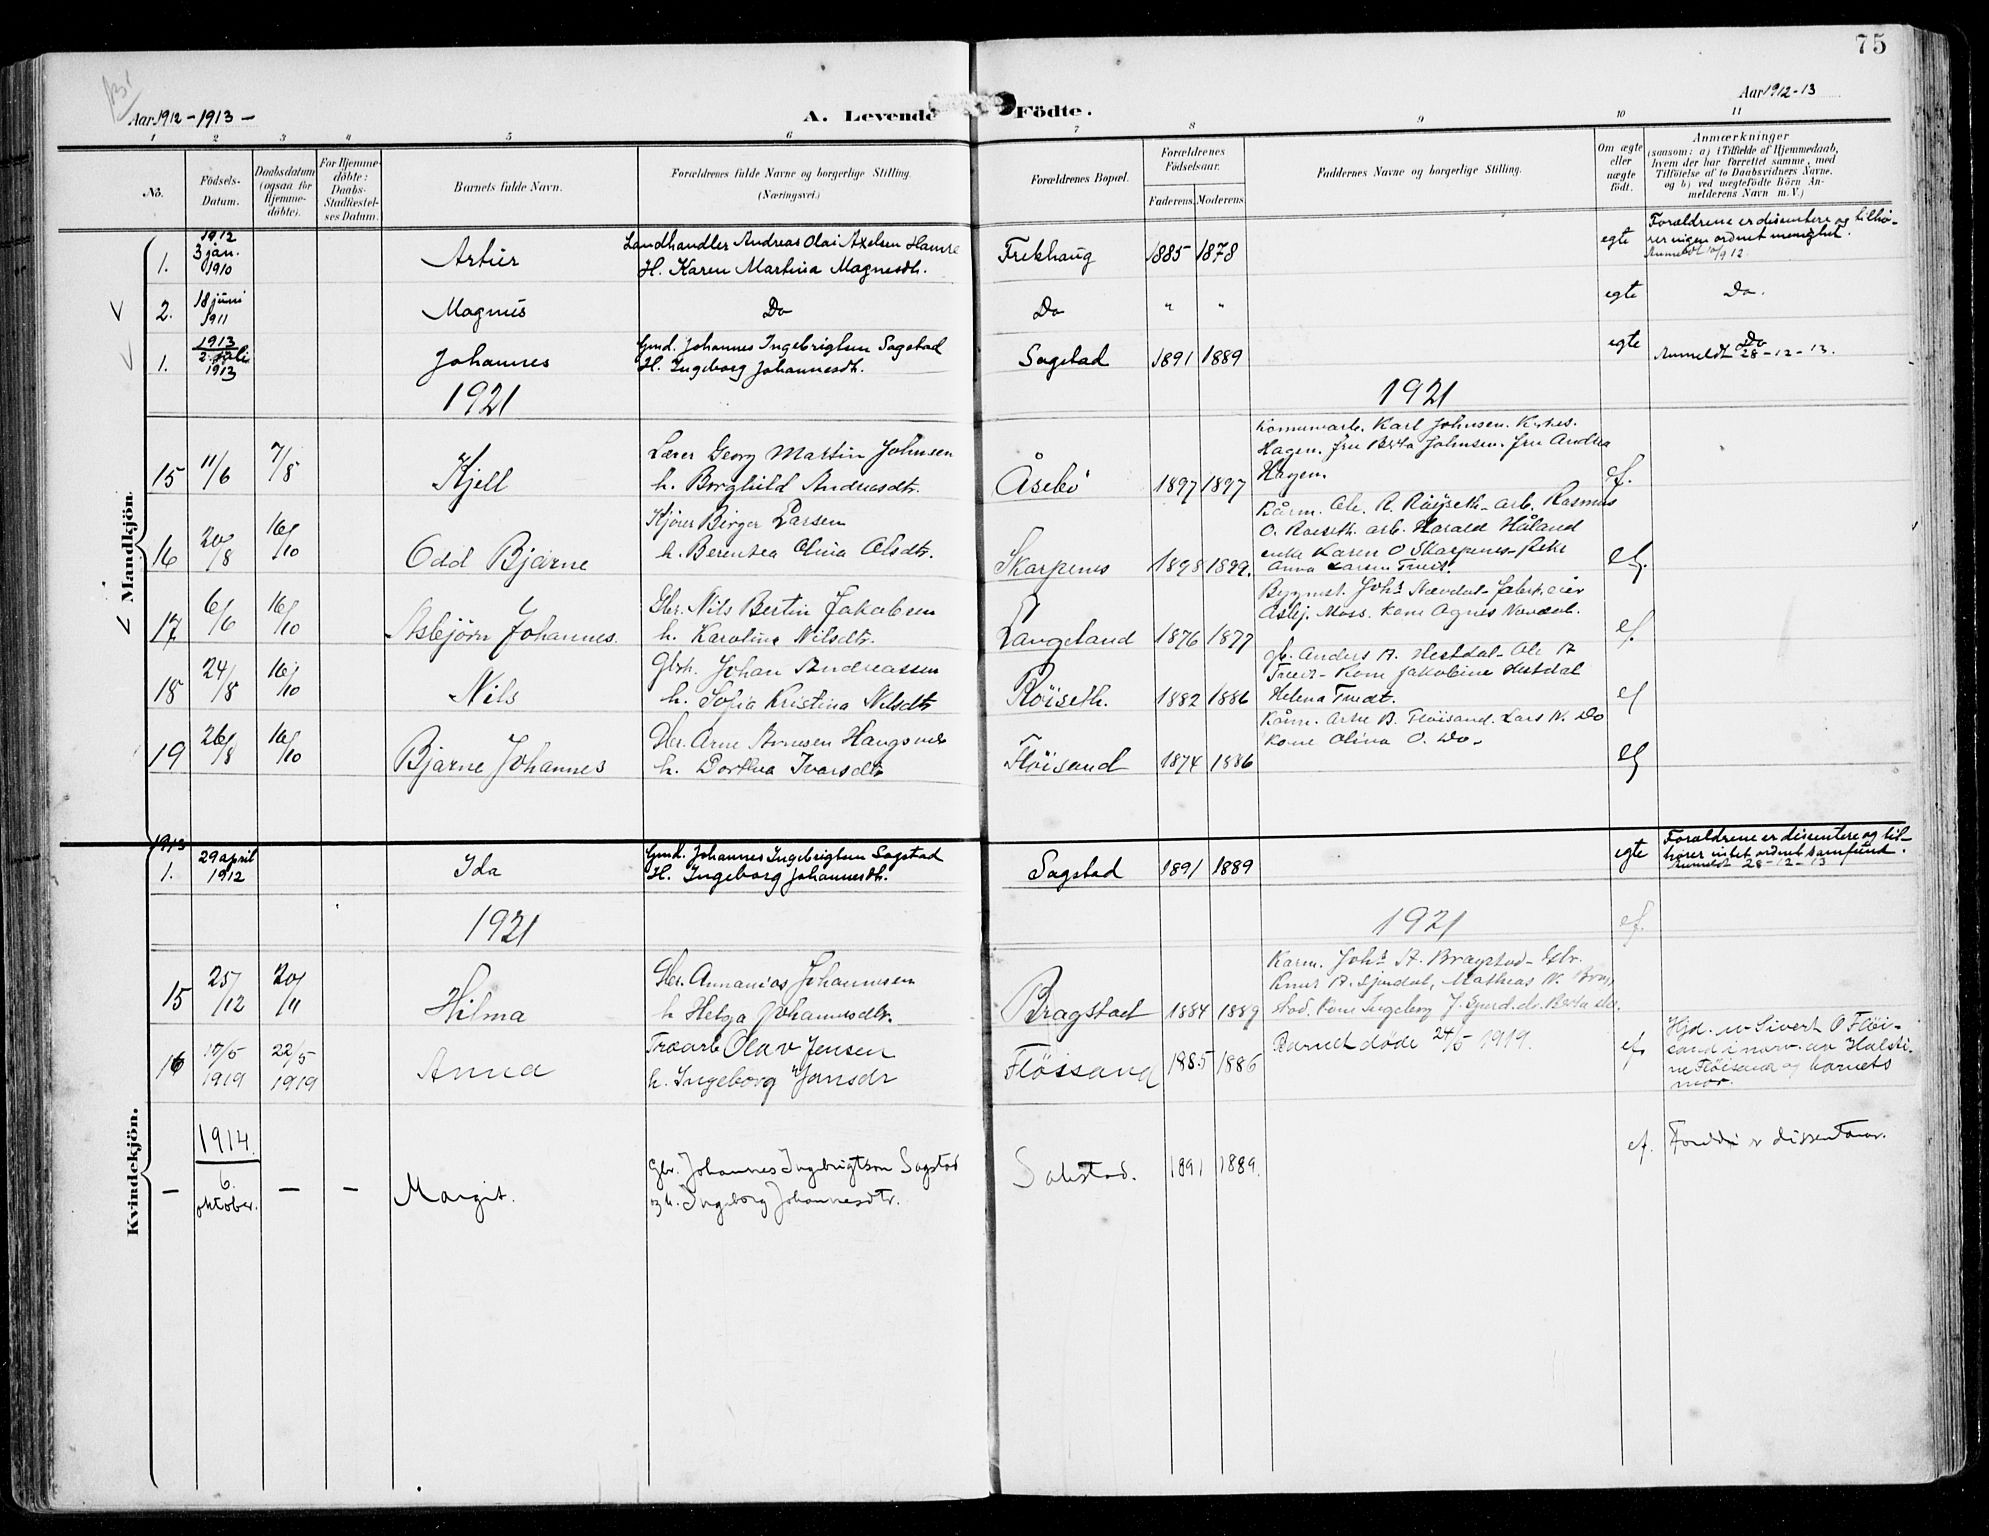 75
Aar 1912 - 1913 -
A. Levende Födte.
Aar 1912 - 13
1 2 3 4 5 6 7 8 9 10 11
No.
Födsels-
Datum.
Daabsdatum
(ogsaa for
Hjemme-
döbte).
For Hjemme-
döbte:
Daabs-
Stadfæstel-
ses Datum.
Barnets fulde Navn.
Forældrenes fulde Navne og borgerlige Stilling.
(Næringsvei.)
Forældrenes Bopæl.
Forældrenes
Födselsaar.
Faderens. Moderens.
Faddernes Navne og borgerlige Stilling.
Om ægte
eller
uægte
födt.
Anmærkninger
(saasom: a) i Tilfælde af Hjemmedaab,
hvem der har forrettet samme, med
Tilföielse af to Daabsvidners Navne,
og b) ved uægtefödte Börn An-
melderens Navn m. V.)
Mandkjön.
1. 1912 3 jan. 1910 Artur
Landhandler Andreas Olai Axelsen Hamre
H. Karen Martina Magnesdh.
Frekhaug 1885 1878 egte
Forældrene er dissentere og tilhö-
rer ingen ordnet menighet.
Anmeldt 10/9 12.
2. 18 juni 1911 Magnus Do Do " " egte Do.
1. 1913 2. juli 1913 Johannes
Gmd. Johannes Ingebrigtsen Sagstad
H. Ingeborg Johannesdh.
Sagstad 1891 1889 egte Do
Anmeldt 28-12-13.
1921 1921
15 11/6 7/8 Kjell
Lærer Georg Martin Johnsen
h. Borghild Andreasdtr.
Åsebö 1897 1897
Karl Johnsen.
Hagen. fru Berta Johnsen. fru Andrea
Hagen. ef.
16 20/8 16/10 Odd Bjarne
Kjörer Birger Larsen
h. Berentea Olina Olsdtr.
Skarpenes 1898 1899.
Kårm. Ole. R. Röiseth - arb. Rasmus
O. Roeseth. arb. Harald Håland
enke Karen O Skarpenes
Anna Larsen Tveit. ef.
17 6/6 16/10 Asbjörn Johannes.
Gbr. Nils Bertin Jakobsen
h. Karolina Nilsdtr.
Langeland 1876 1877
Asbj. Moss. Kone Agnes ef.
18 24/8 16/10 Nils
Gbr. Johan Andreassen
h. Sofia Kristina Nilsdtr
Röiseth. 1882 1886
gb. Anders A. Hestdal - Ole A
Tveit - Kone Jakobine Hestdal
Helena Tvedt. ef
19 26/8 16/10 Bjarne Johannes
Gbr. Arne Arnesen
h. Dorthea Ivarsdtr
Flöisand 1874 1886
Kårm. Arne B. Flöisand. Lars N. Do
Kone Olina O. Do. ef
Kvindekjön.
1913
1. 29 april 1912 Ida
Gmd. Johannes Ingebrigtsen Sagstad
H. Ingeborg Johannesdh.
Sagstad 1891 1889 egte
Forældrene er dissentere og til-
hörer intet ordnet samfund.
Anmeldt 28-12-13
1921 1921 ef.
15 25/12 20/11 Hilma
Gbr. Annanias Johannesen
h Helga Johannesdtr.
Bragstad 1884 1889
Karm. Johs A. Bragstad - Gbr.
Knut A. Mathias N. Brag-
stad. Kone Ingeborg
16 17/5 1919 22/5 1919 Anna
Træarb Olav Jensen
h. Ingeborg Jensdr
Flöissand 1885 1886
Barnet döde 24/5 1919. ef.
Hjd. av Sivert O Flöi-
sand i nærv. av Halsti-
ne Flöisand og barnets
mor.
– 1914. 6. oktober. – – Margit.
Gbr. Johannes Ingebrigtson Sagstad
h. Ingeborg Johannesdtr.
1891 1889. ef. er dissentarar.